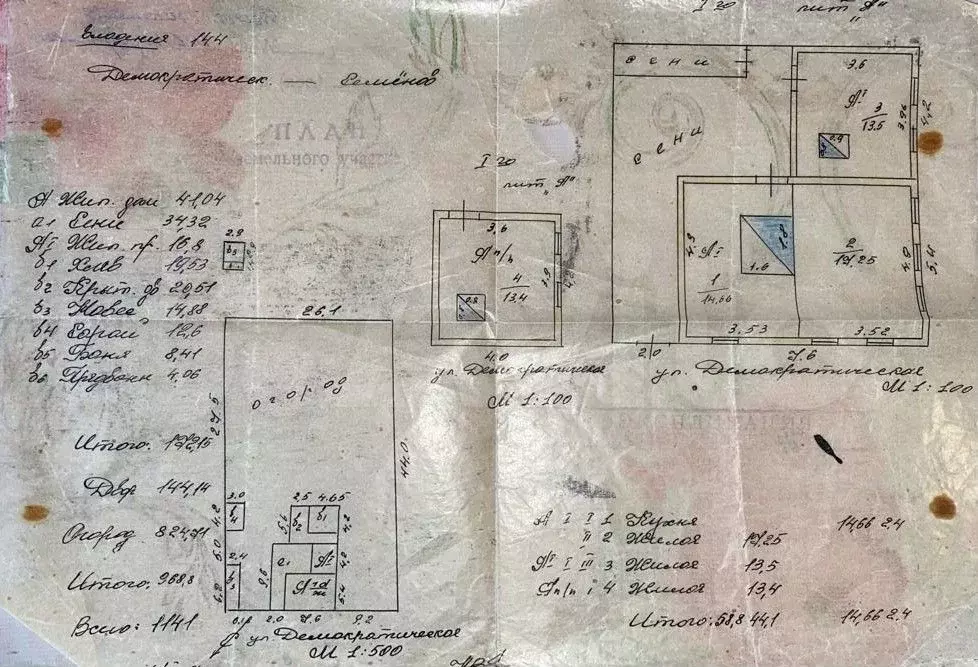 Владения 144
Демократическ. — Семёнов
А Жил. дом 41,04
а1 Сени 34,32
АI Жил. пр. 16,8
б1 Хлев 19,53
б2 Крыт. дв 20,51
б3 Навес 14,88
б4 Сарай 12,6
б5 Баня 8,41
б6 Предбанн 4,06
Итого:
Двор 144,14
Огород
Итого: 968,8
Всего: 1141
2.9
б5
26.1
огород
27,5
44.0
3.0
б4
4.2
5.0
2.4
6.2
2,5 4.65
б2
б1
4,2
а1
АI
4.2
9.6
5.4
2.0 7.6 9.2
ул Демократическая
М 1:500
I эо
лит „А"
3.6
Ап/п
4
13,4
3.9
4.2
0.8
4.0
ул. Демократическая
М 1:100
I эо
лит „А"
сени
сени
3.6
АI
3
13.5
3.96
4.2
0.9
4.9
АI
1
14,66
1.6
1.8
2
17,25
4.9
5.4
3.53
3.52
2,0
7.6
ул. Демократическая
М 1:100
А I I 1 Кухня 14,66 2.4
II 2 Жилая 17,25
АI I III 3 Жилая 13,5
Ап/п I 4 Жилая 13,4
Итого: 58,8 44,1 14,66 2.4